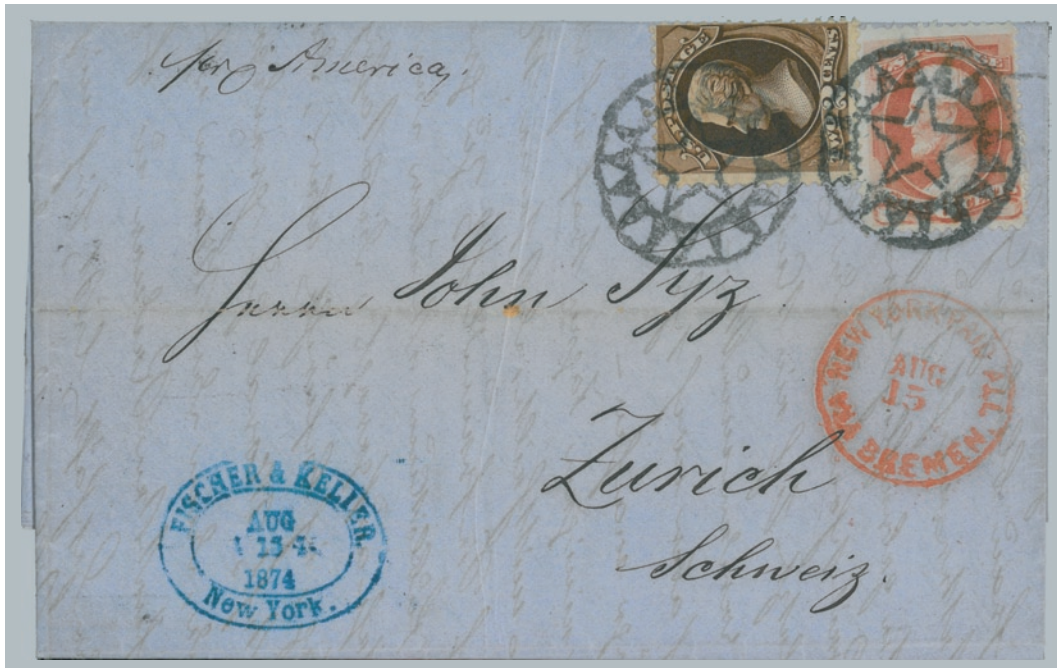 per America,
U.S. POSTAGE
Herrn John Syz.
NEW YORK PAID ALL
AUG
15
VIA BREMEN.
Zurich
Schweiz.
FISCHER & KELLER.
AUG
15
1874
New York.